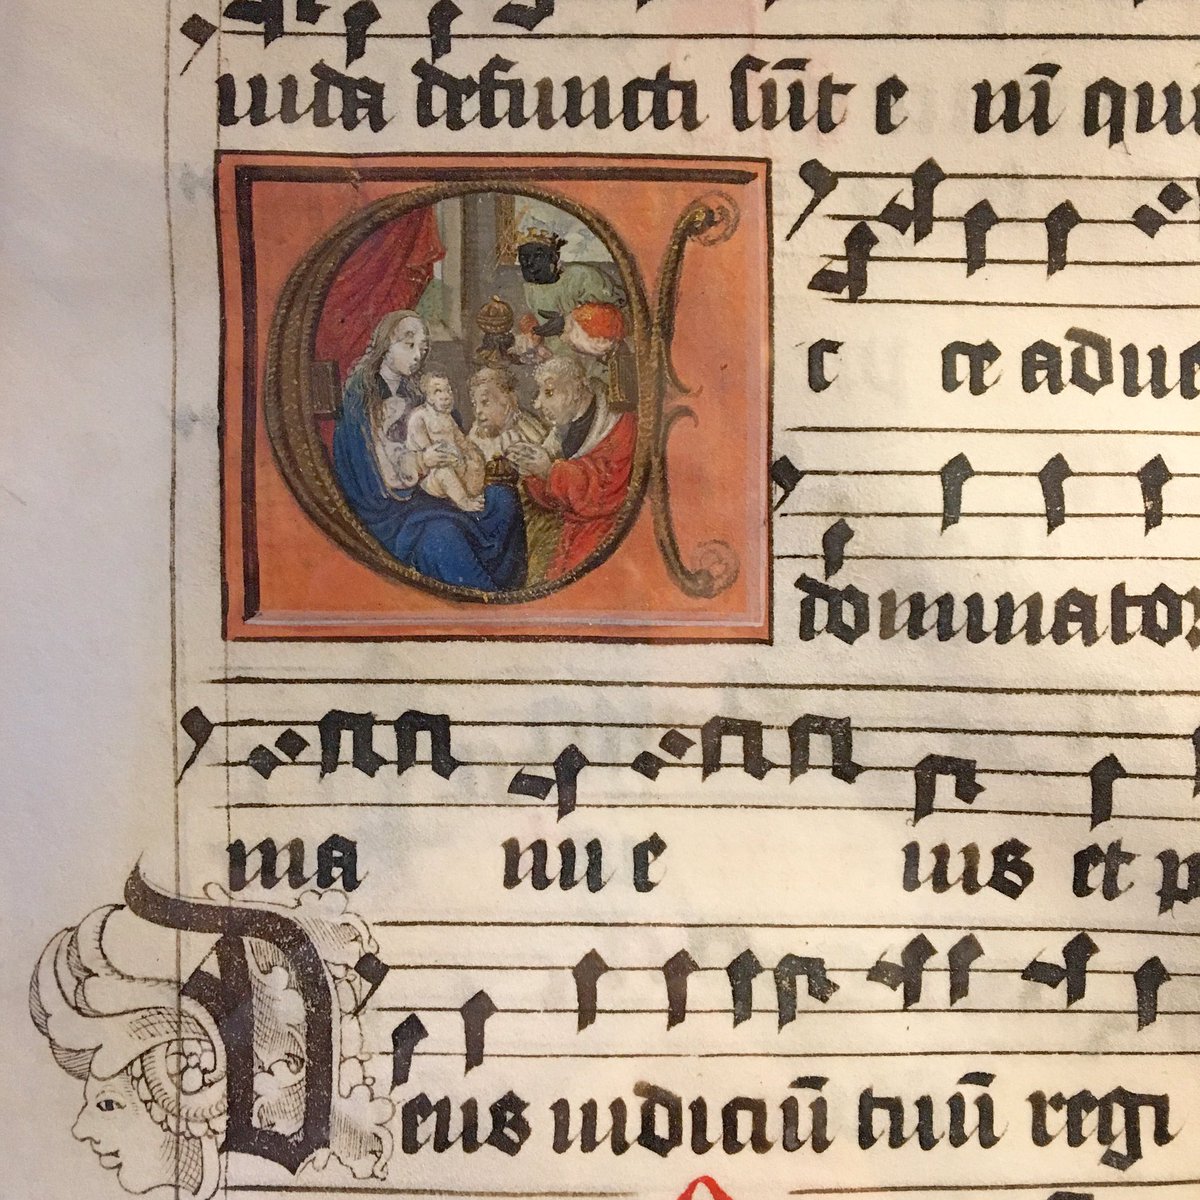 iuda defuncti sūt e nī qui
E c ce adue
dominator
ma nu e ius et p
Deus iudiciū tuū regi